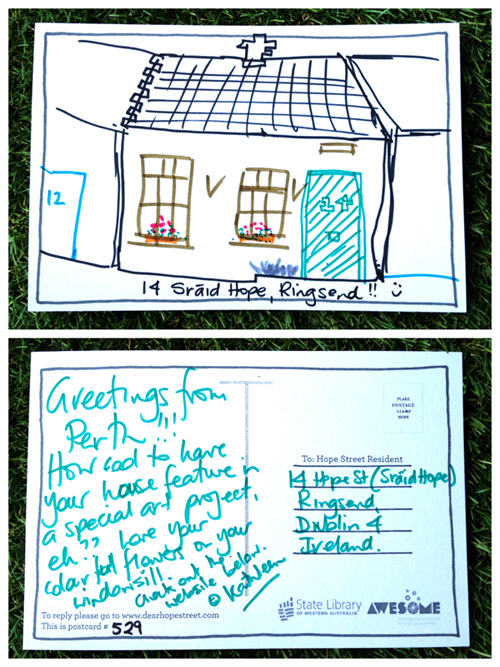 12
14
14 Sráid Hope, Ringsend !! :)
Greetings from
Perth!!!
How cool to have
your house feature in
a special art project,
eh?? Love your
colourful flowers on your
windowsill.
Check out the
website below.
Kathleen
PLACE
POSTAGE
STAMP
HERE
To: Hope Street Resident
14 Hope St (Sráid Hope)
Ringsend
Dublin 4
Ireland.
To reply please go to www.dearhopestreet.com
This is postcard # 529
State Library
OF WESTERN AUSTRALIA
AWESOME